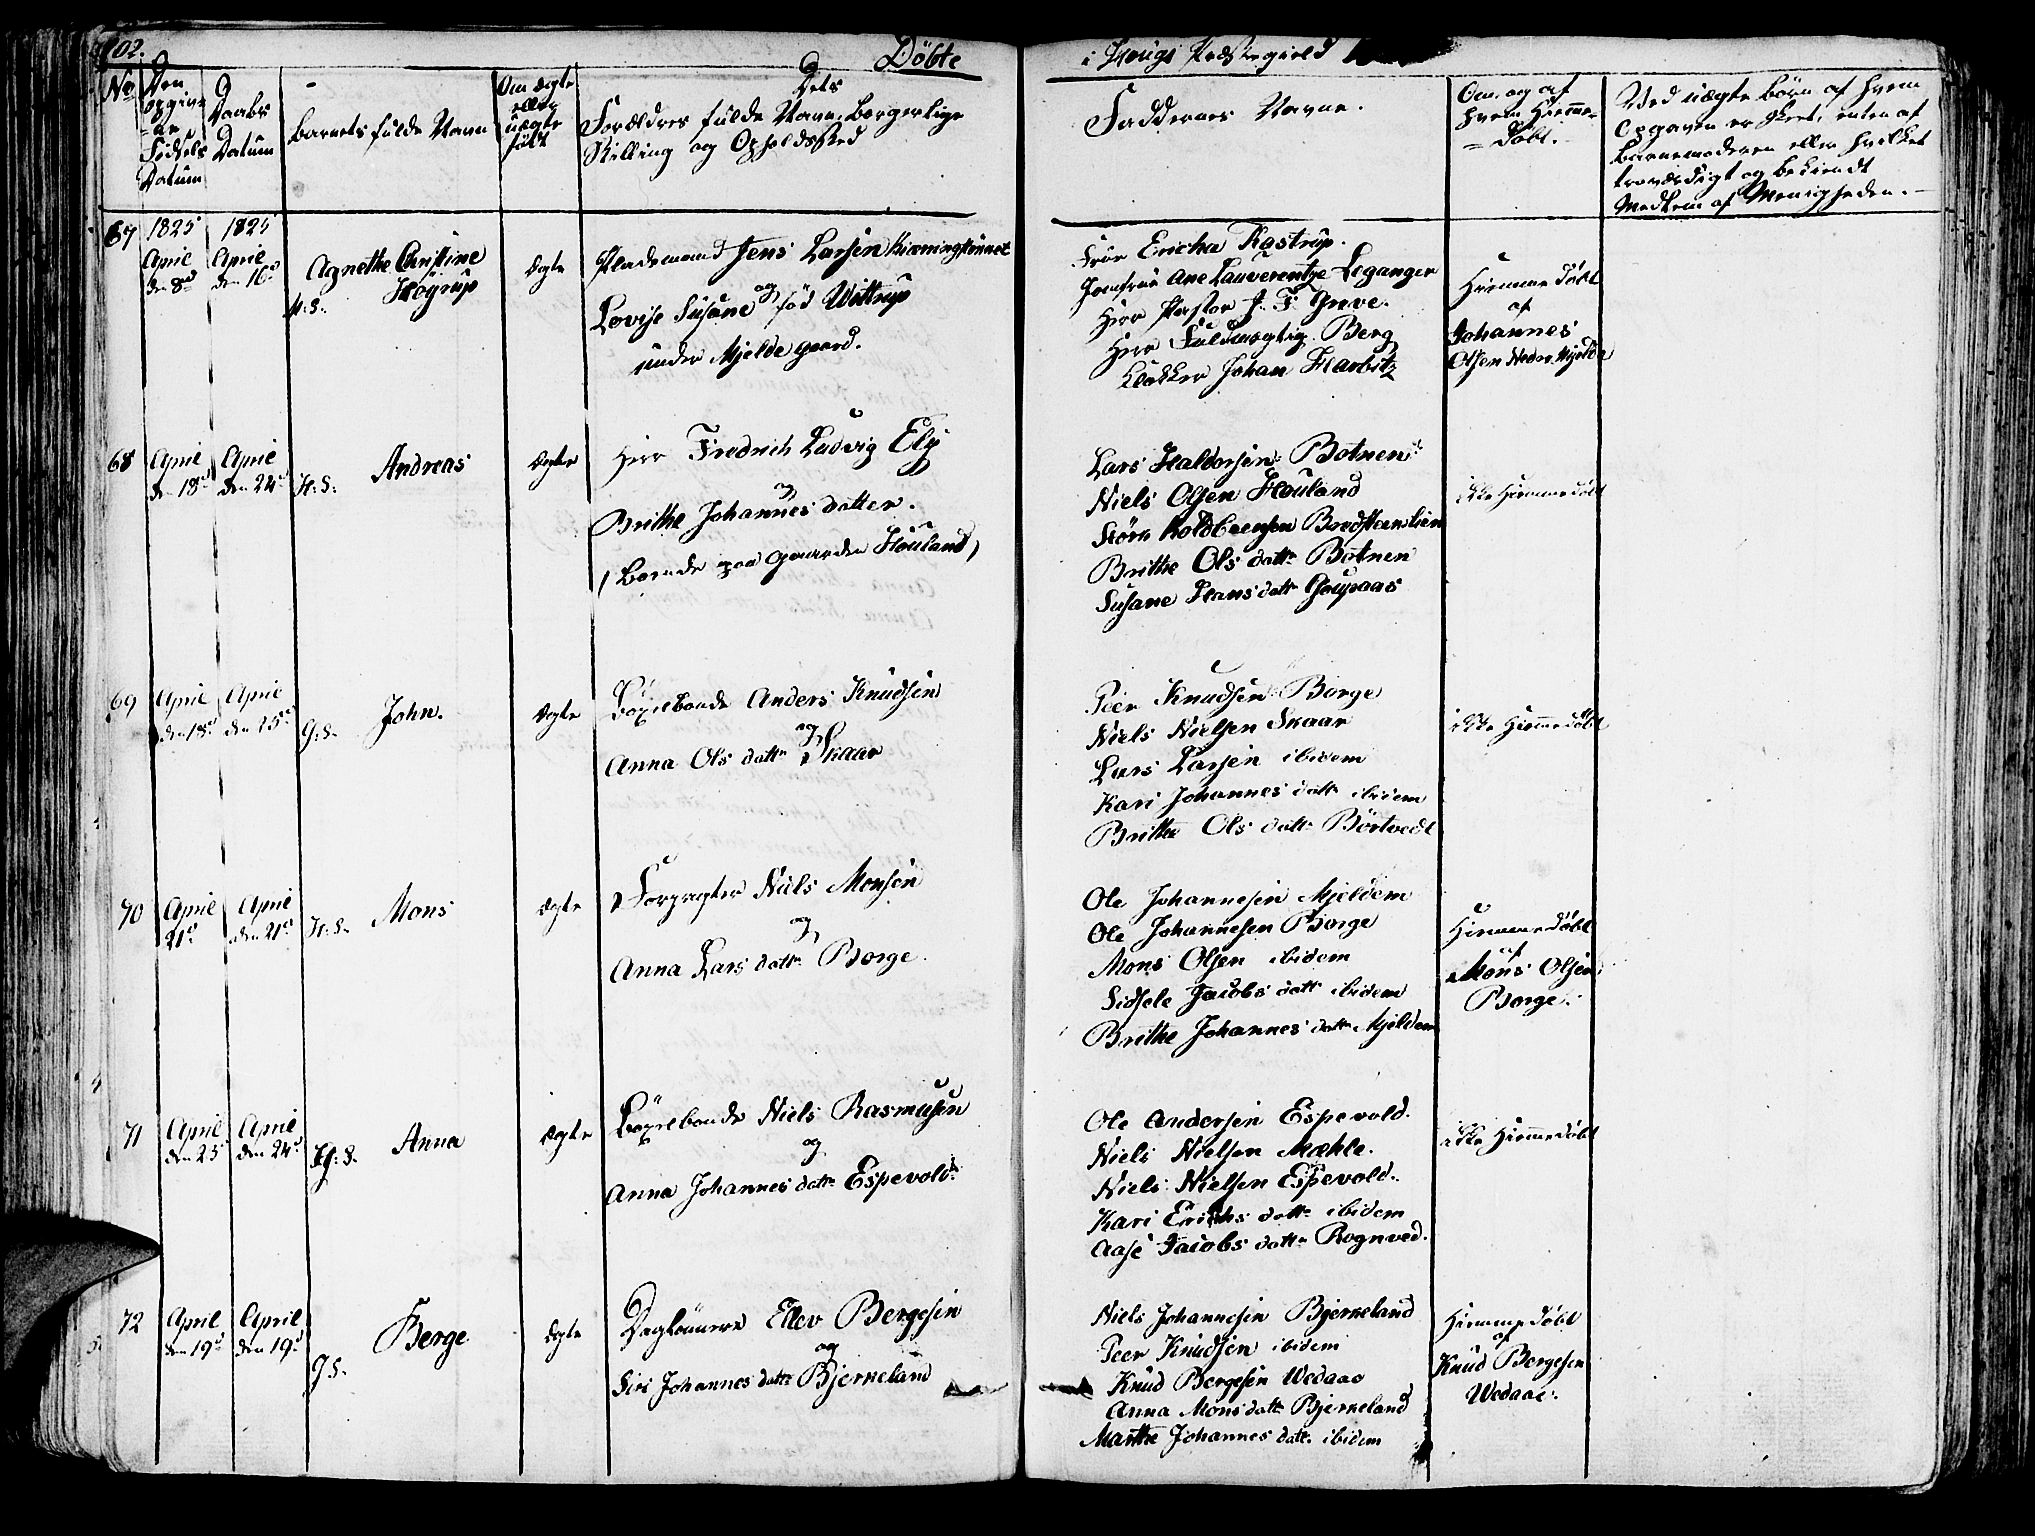 102.
Döbte
i Hougs Præstegield
No
Den
opgivne
Födsels
Datum
Daabs
Datum
Barnets fulde Navn
Om ægte
eller
uægte
föbt
Dets
Forældres fulde Navn, Borgerlige
Stilling og Opholdssted
Faddernes Navne.
Om og af
hvem Hiemme-
-Döbt.
Ved uægte Börn af hvem
Opgaven er skeet, enten af
Barnemoderen eller hvilket
troværdigt og bekiendt
Medlem af Menigheden.
67
1825
April
den 8d
1825
April
den 16d
H: S.
Agnethe Christine
Höyrup
ægte
Jens Larsen
og
Lovise Susane föd Wittrup
under Mjelde gaard.
Ericha Kastrup.
Jomfrue Ane Lauverentze Leganger
Herr Pastor J. F. Greve.
Herr Fuldmægtig Berg
Klokker Johan Harbitz
Hiemme Döbt
af
Johannes
Olsen Nedre Mjelde
68
April
den 18d
April
den 24d
H: S.
Andreas
ægte
Herr Fredrich Ludvig Ely
og
Brithe Johannes datter.
(Boende paa Gaarden Houland)
Lars Haldorsen Botnen
Niels Olsen Houland
Brithe Ols datr Botnen
Susane Hans datr Gaupaas
ikke Hiemme döbt
69
April
den 18d
April
den 25d
G: S.
John.
ægte
Böxelbonde Anders Knudsen
og
Anna Ols datr Skaar
Peer Knudsen Borge
Niels Nielsen Skaar
Lars Larsen ibidem
Kari Johannes datr ibidem
Brithe Ols datr Börtvedt
ikke Hiemme döbt
70
April
21d
April
den 21d
H: S.
Mons
ægte
Forpagter Niels Monsen
og
Anna Lars datr Borge.
Ole Johannesen Mjeldem
Ole Johannesen Borge
Mons Olsen ibidem
Sidsele Jacobs datr ibidem
Brithe Johannes datr Mjeldem
Hiemme Döbt
af
Mons Olsen
Borge.
71
April
den 23
April
den 24d
H: S.
Anna
ægte
Böxelbonde Niels Rasmusen
og
Anna Johannes datr Espevold
Ole Andersen Espevold.
Niels Nielsen Mæhle.
Niels Nielsen Espevold.
Kari Erichs datr ibidem
Aase Jacobs datr Rognved.
ikke Hiemme döbt
72
April
den 19d
April
den 19d
G: S.
Berge
ægte
Daglönnere Ellev Bergesen
og
Siri Johannes datr Bjerkeland
Niels Johannesen Bjerkeland
Peer Knudsen ibidem
Knud Bergesen Wedaae
Anna Mons datr Bjerkeland
Marthe Johannes datr ibidem
Hiemme Döbt
af
Knud Bergesen
Wedaae.